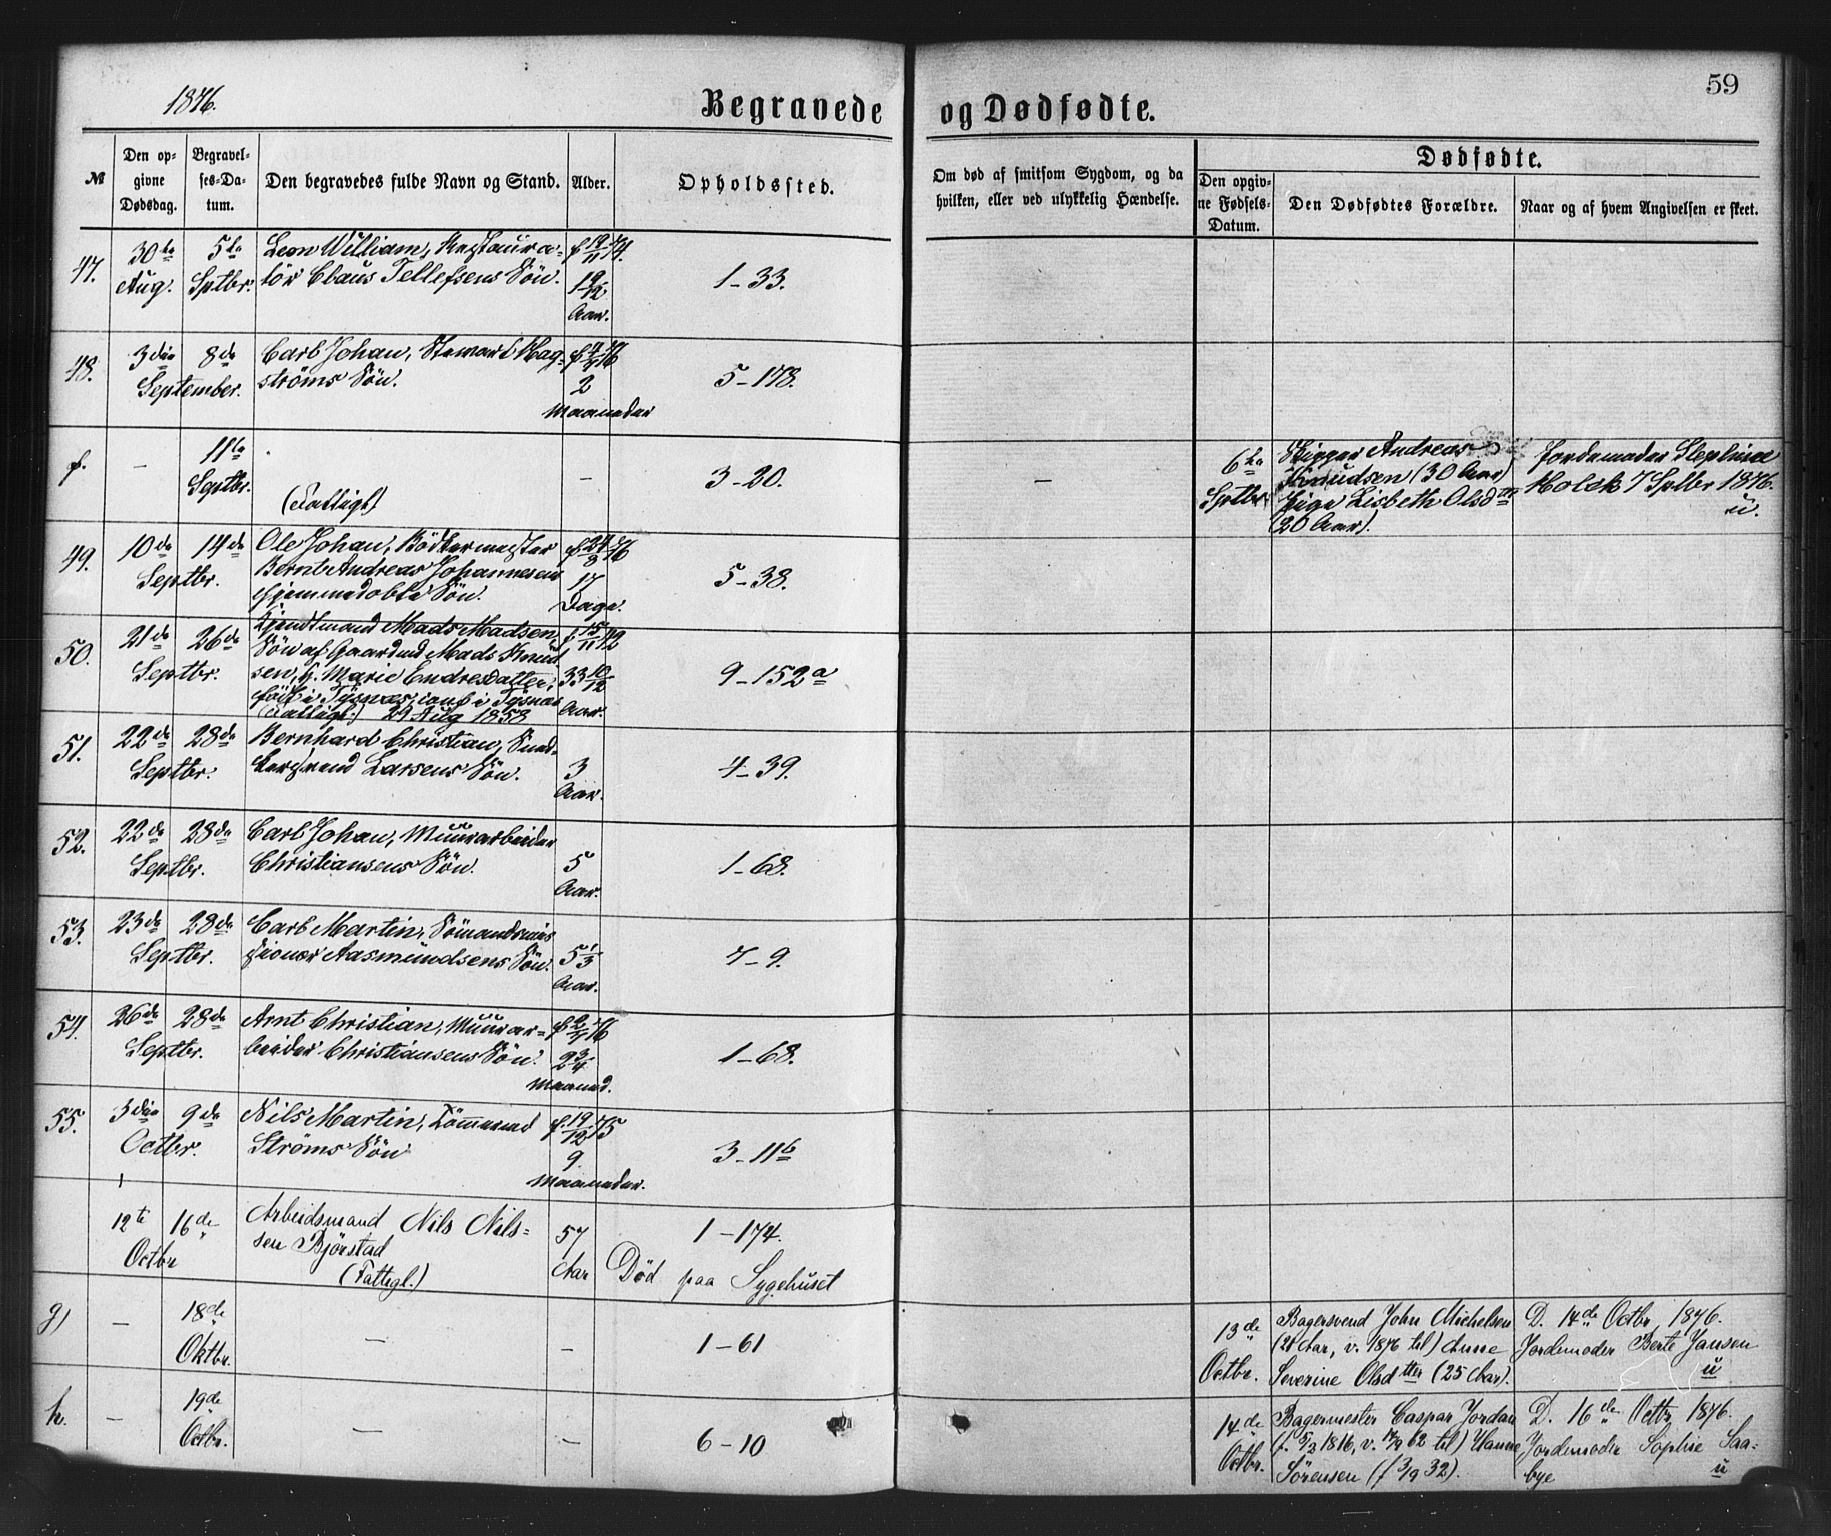 59
1876.
Begravede og Dødfødte.
№
Den opgivne Dødsdag.
Begravelses-Datum.
Den begravedes fulde Navn og Stand.
Alder.
Opholdssted.
Om død af smitsom Sygdom, og da
hvilken, eller ved ulykkelig Hændelse.
Dødfødte.
Den opgivne Fødsels-Datum.
Den Dødfødtes Forældre.
Naar og af hvem Angivelsen er skeet.
47. 30te 5te Leon William, Restaura- f. 19/11 74.
Aug. Sptbr. tör Claus Tellefsens Sön. 1 9/12 1-33.
Aar.
48. 3die 8de Carl Johan, Steward Hag-
September. ströms Sön. 2 5-178.
Maaneder
f. - 11te
Septbr. - 3-20. -
(Fattigl)
6te Skipper Andreas Jordemoder Stephine
Knudsen (30 Aar) Holck 7 Sptbr 1876.
Sptbr. Pige Lisbeth Olsdtter u.
(20 Aar).
49. 10de 14de Ole Johan, Bödkermester f. 24/8 76
Septbr. Bernt Andreas Johannesens 17 5-38.
hjemmedöbte Sön. Dage.
50. 21de 26de Tjendtmand Mads Madsen, f. 15/11 42
Septbr. Sön af Gaardmd Mads Knud-
sen, h. Marie Endresdatter; 33 10/12 9-152a
föd i Tysnæs, conf i Tysnæs Aar.
(Fattigl.) 29 Aug 1858
51. 22de 28de Bernhard Christian, Sned-
Septbr. kersvend Larsens Sön. 3 4-39.
Aar.
52. 22de 28de Carl Johan, Muurarbeider
Septbr. Christiansens Sön. 5 1-68.
Aar.
53. 23de 28de Carl Martin, Sömandsmis-
Septbr. sionær Aasmundsens Sön. 5 1/3 7-9.
Aar.
54. 26de 28de Arnt Christian, Muurar-
Septbr. beider Christiansens Sön. 2 3/4 1-68.
Maaned.
55. 3die 9de Nils Martin, Tömmermd f. 19/12 75
Octbr. Ströms Sön 9. 3-11b
Maaneder.
12te 16de Arbeidsmand Nils Nils- 57 1-174.
Octbr sen Björstad Aar Död paa Sygehuset
(Fattigl.)
g) - 18de - - 1-61
Oktbr.
13de Bagersvend John Michelsen D. 14de Octbr 1876.
(21 Aar, v. 1876 til) Anne Jordemoder Berte Jansen
Octbr. Severine Olsdtter (25 Aar). u
h. - 19de - - 6-10
Octbr.
14de Bagermester Caspar Jordan D. 16de Octbr 1876.
(f. 5/3 1816, v. 17/9 62 til) Hanne Jordemoder Sophie Saa-
Octbr. Sörensen (f 3/9 32). bye u